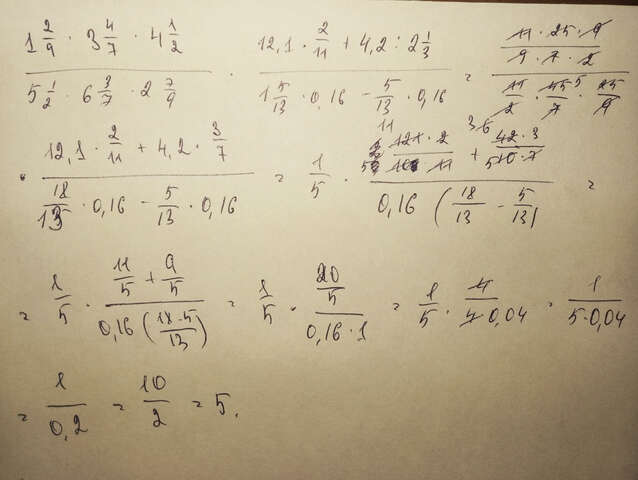 1 2/9 · 3 4/7 · 4 1/2 / 5 1/2 · 6 3/7 · 2 7/9 · 12,1 · 2/11 + 4,2 : 2 1/3 / 1 5/13 · 0,16 − 5/13 · 0,16 = 11 · 25 · 9 / 9 · 7 · 2 / 11/2 · 45/7 · 25/9
· 12,1 · 2/11 + 4,2 · 3/7 / 18/13 · 0,16 − 5/13 · 0,16 = 1/5 · 121 · 2 / 10 · 11 + 42 · 3 / 10 · 7 / 0,16 (18/13 − 5/13) =
= 1/5 · 11/5 + 9/5 / 0,16 (18 − 5 / 13) = 1/5 · 20/5 / 0,16 · 1 = 1/5 · 4 / 4 · 0,04 = 1 / 5 · 0,04
= 1 / 0,2 = 10/2 = 5.